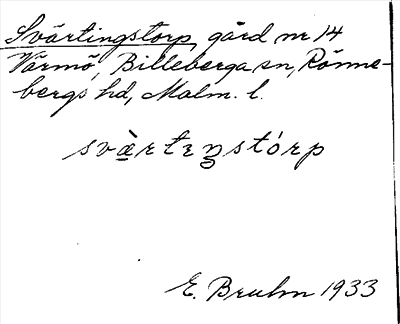 Svärtingstorp, gård nr 14
Värmö, Billeberga sn, Rönne-
bergs hd, Malm. l.
svà̱rtɪŋstórp
E. Bruhn 1933